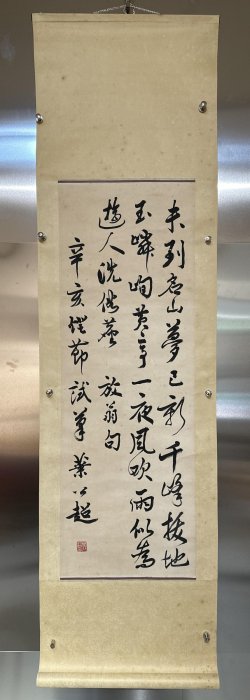 未到名山夢已新千峰拔地
玉嶙峋黃亭一夜風吹雨似為
遊人洗俗塵 放翁句
辛亥燈節試筆 葉公超